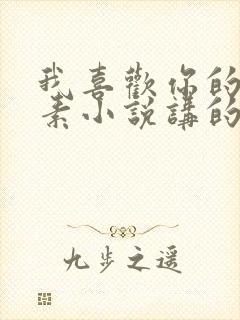 我喜歡你的
素小說講的
九步之遥